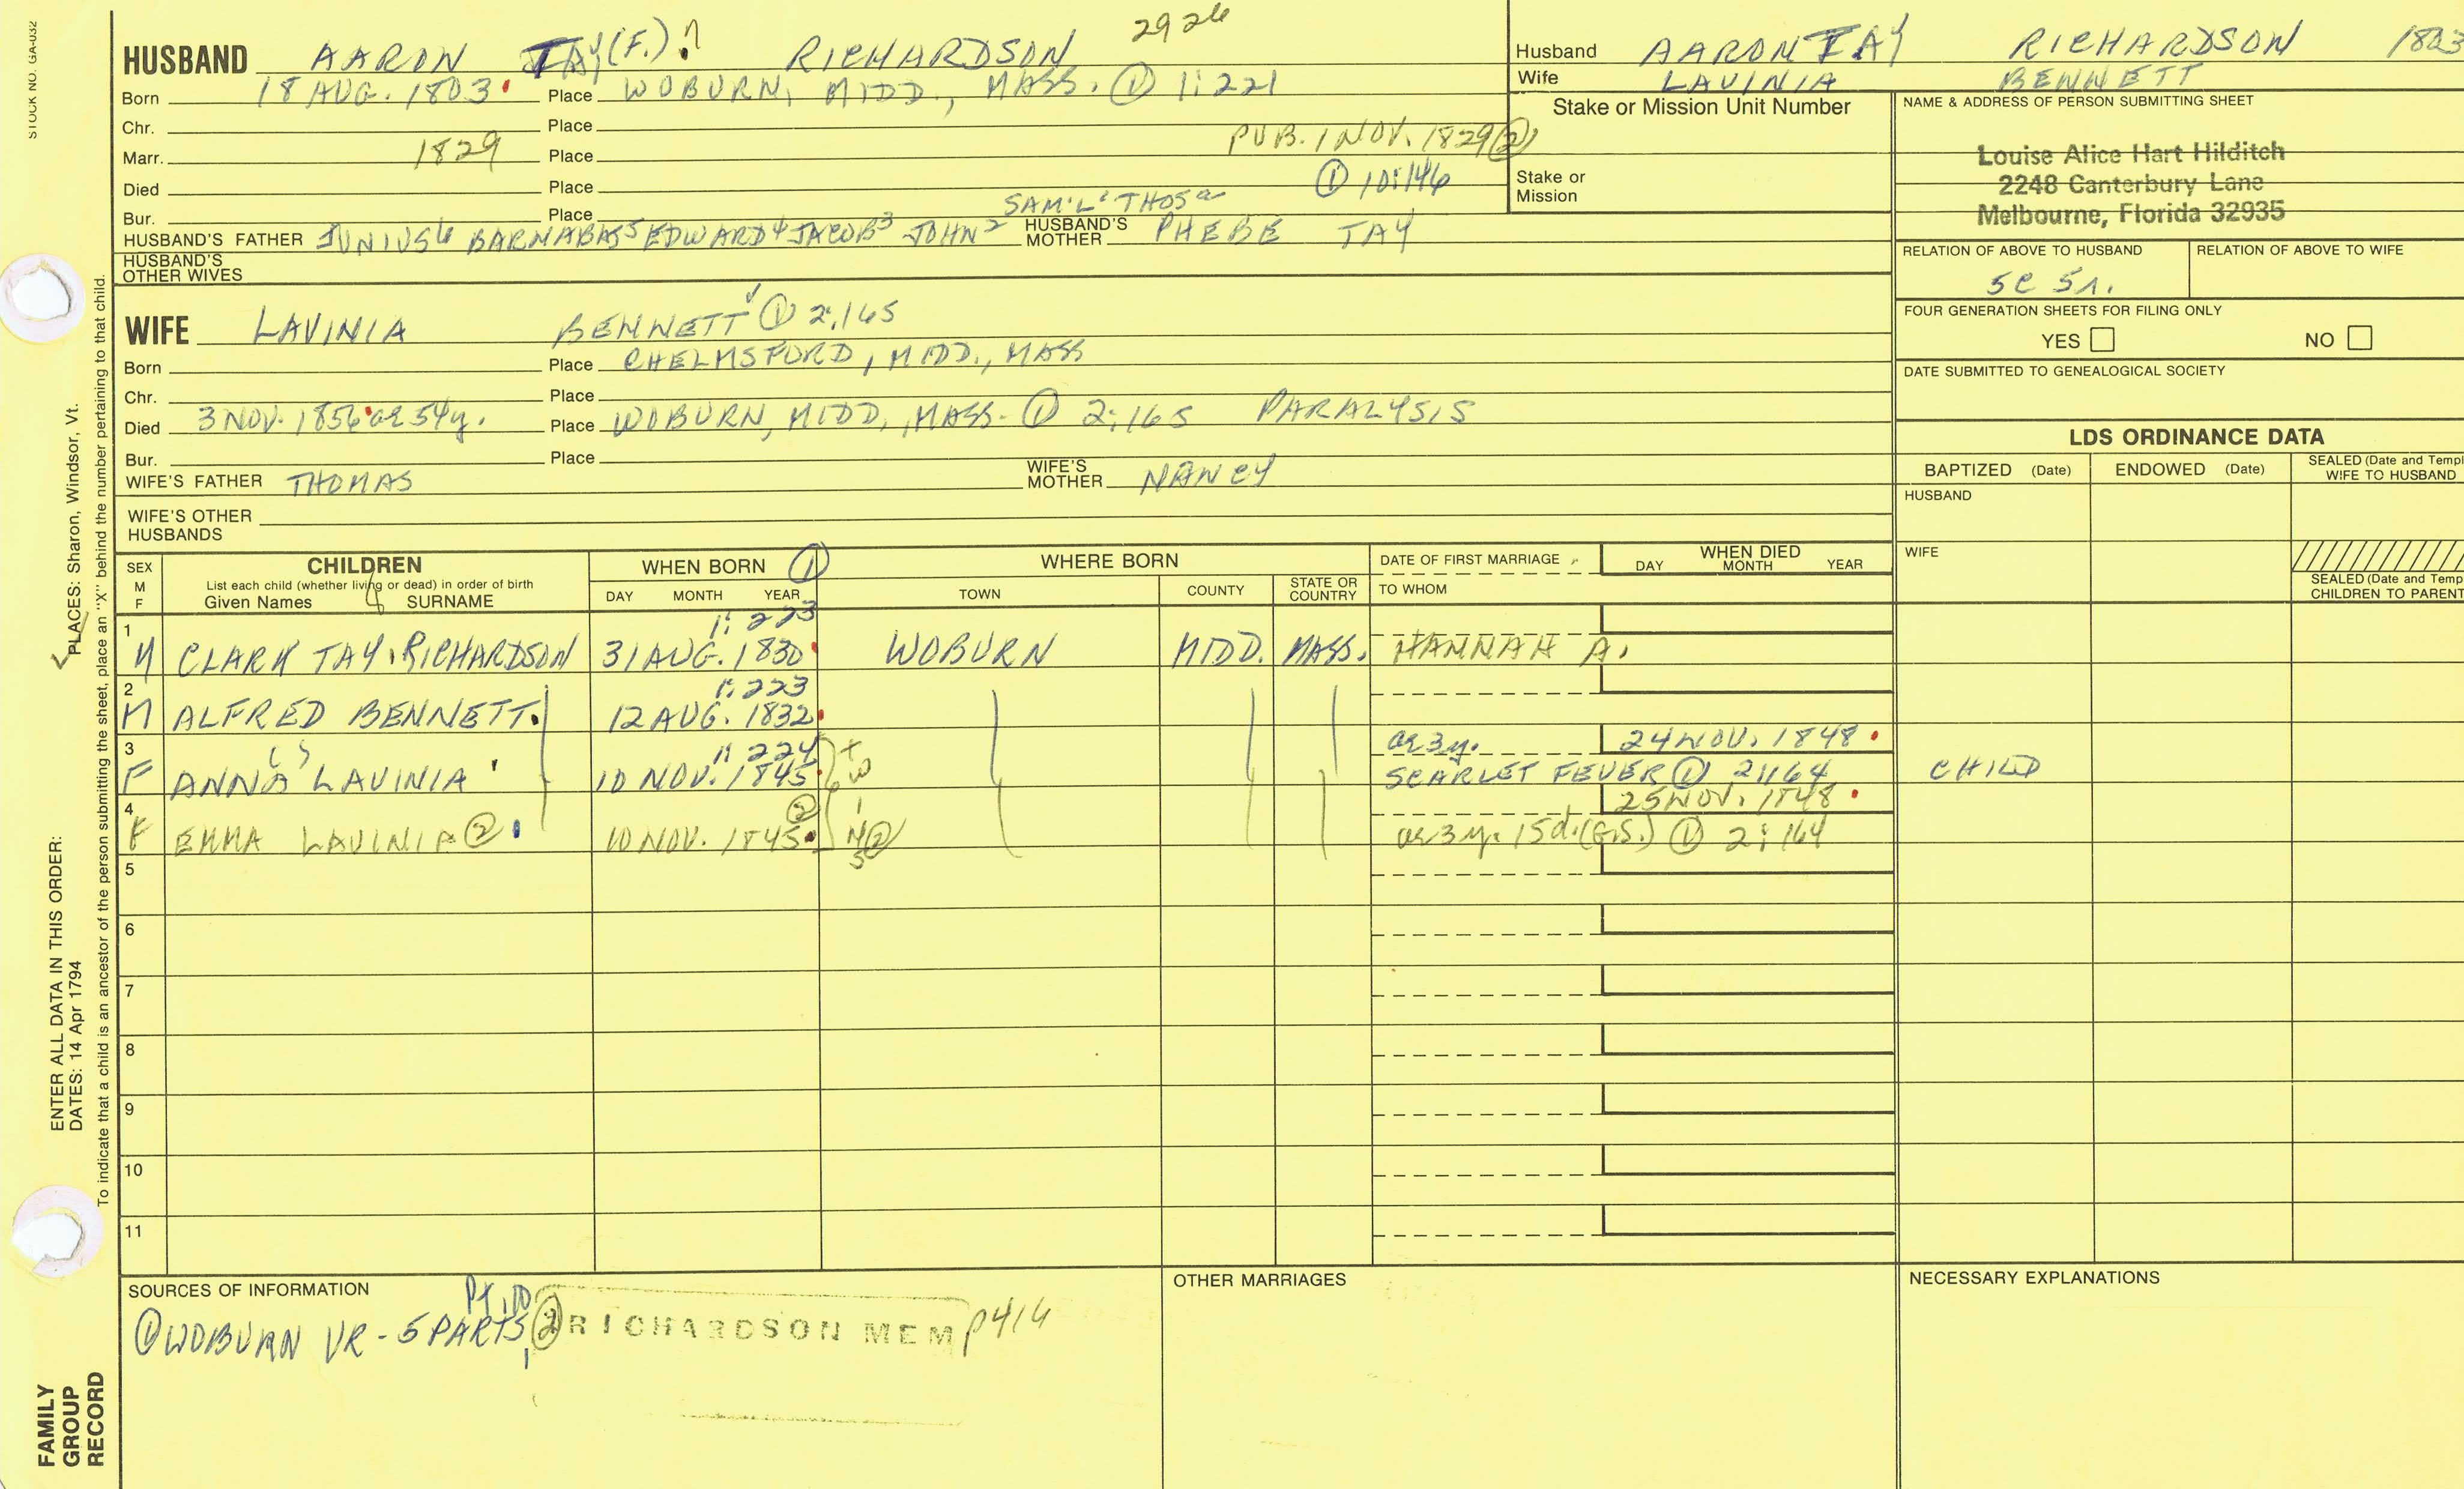 STOCK NO. GA-032
HUSBAND AARON TAY (F.)? RICHARDSON 2926
Born 18 AUG. 1803 Place WOBURN, MIDD., MASS. ① 1:221
Chr. Place
Marr. 1829 Place PUB. 1 NOV. 1829 ②
Died Place ① 10:146
Bur. Place
SAM'L' THOS
HUSBAND'S FATHER JUNIUS6 BARNABAS5 EDWARD4 JACOB3 JOHN2 HUSBAND'S MOTHER PHEBE TAY
HUSBAND'S OTHER WIVES
WIFE LAVINIA BENNETT ① 2:165
Born Place CHELMSFORD, MIDD., MASS
Chr. Place
Died 3 NOV. 1856 ae 54y. Place WOBURN, MIDD., MASS. ① 2:165 PARALYSIS
Bur. Place
WIFE'S FATHER THOMAS WIFE'S MOTHER NANCY
WIFE'S OTHER HUSBANDS
Husband AARON TAY RICHARDSON 1803
Wife LAVINIA BENNETT
Stake or Mission Unit Number
Stake or Mission
NAME & ADDRESS OF PERSON SUBMITTING SHEET
Louise Alice Hart Hilditch
2248 Canterbury Lane
Melbourne, Florida 32935
RELATION OF ABOVE TO HUSBAND RELATION OF ABOVE TO WIFE
FOUR GENERATION SHEETS FOR FILING ONLY
YES NO
DATE SUBMITTED TO GENEALOGICAL SOCIETY
LDS ORDINANCE DATA
BAPTIZED (Date) ENDOWED (Date) SEALED (Date and Templ
WIFE TO HUSBAND
HUSBAND
WIFE
SEALED (Date and Temp
CHILDREN TO PARENT
SEX M F CHILDREN WHEN BORN ① WHERE BORN DATE OF FIRST MARRIAGE WHEN DIED
List each child (whether living or dead) in order of birth
Given Names SURNAME DAY MONTH YEAR TOWN COUNTY STATE OR COUNTRY TO WHOM DAY MONTH YEAR
1 1:223
M CLARK TAY RICHARDSON 31 AUG. 1830 WOBURN MIDD. MASS. HANNAH A.
2 1:223
M ALFRED BENNETT 12 AUG. 1832
3 1:224 ae 3y. 24 NOV. 1848
F ANNA LAVINIA 10 NOV. 1845 SCARLET FEVER ① 2:164 CHILD
4 ② 25 NOV. 1848
F EMMA LAVINIA ② 10 NOV. 1845 ae 3y. 15d. (G.S.) ① 2:164
5
6
7
8
9
10
11
SOURCES OF INFORMATION
Pt. 10
① WOBURN VR - 5 PARTS, ② RICHARDSON MEM p 416
OTHER MARRIAGES
NECESSARY EXPLANATIONS
ENTER ALL DATA IN THIS ORDER:
DATES: 14 Apr 1794 PLACES: Sharon, Windsor, Vt.
To indicate that a child is an ancestor of the person submitting the sheet, place an "X" behind the number pertaining to that child.
FAMILY
GROUP
RECORD